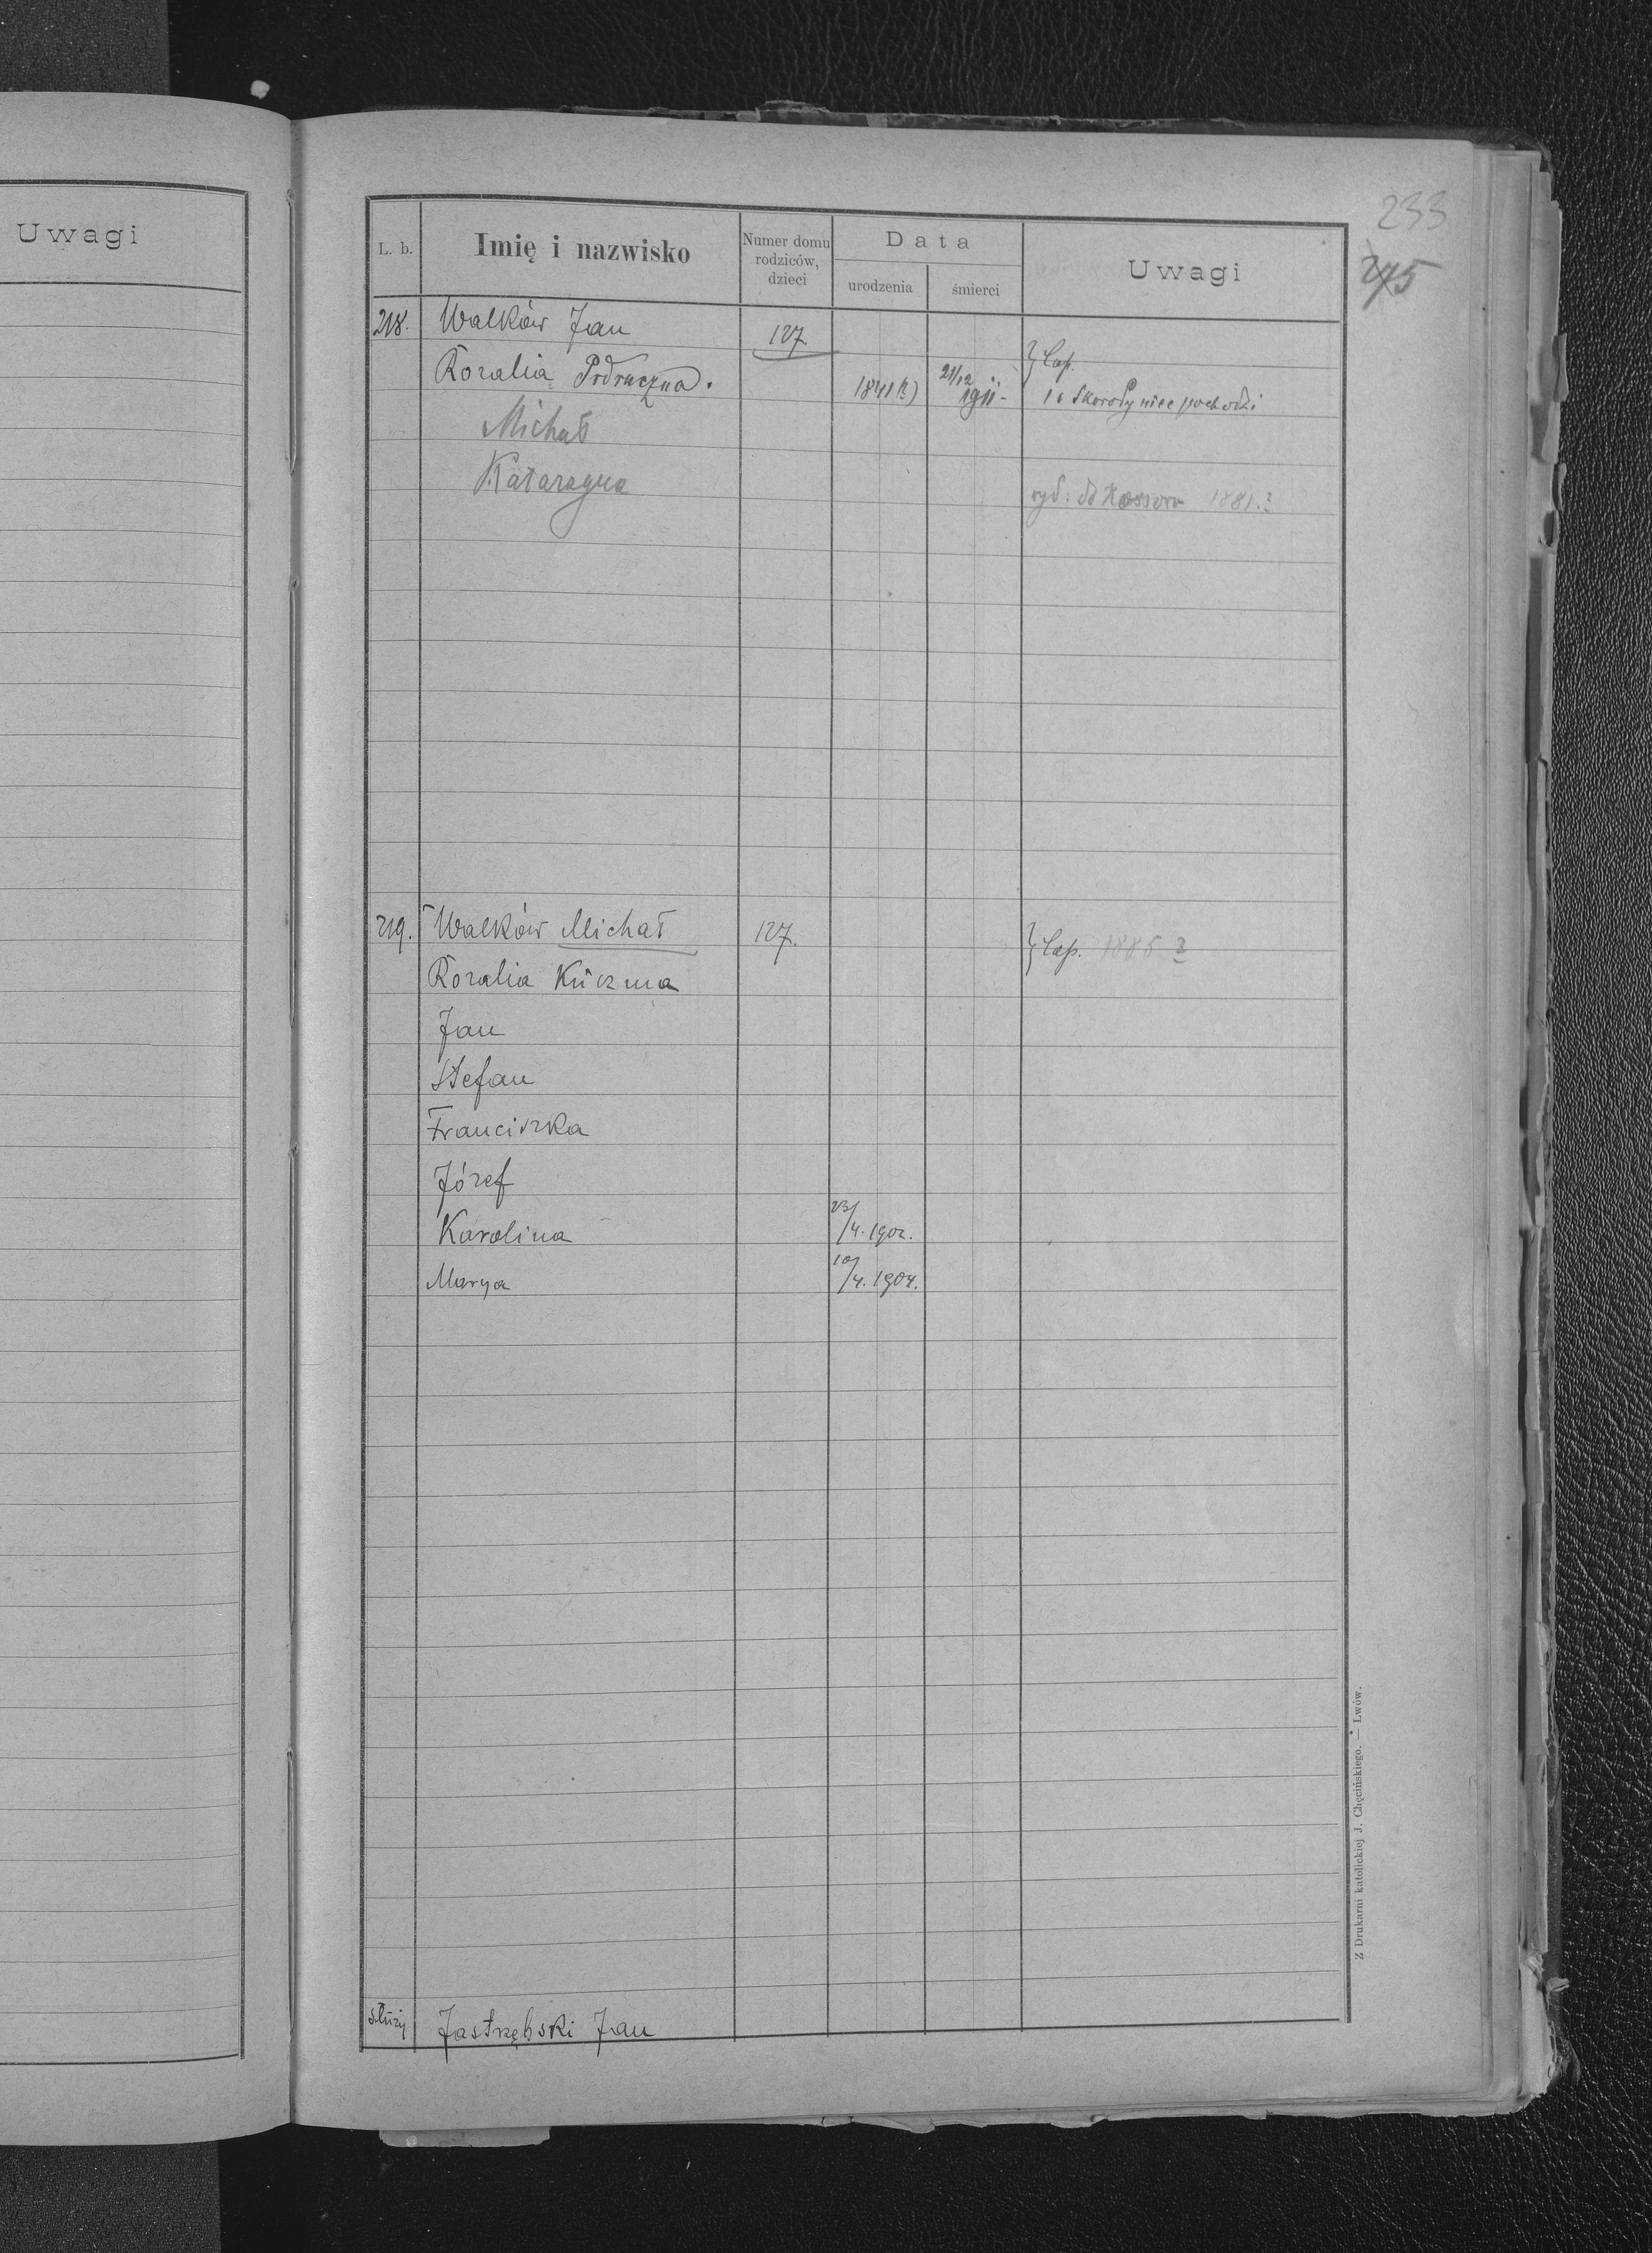 Uwagi
233
245
L. b.
Imię i nazwisko
Numer domu rodziców, dzieci
Data
urodzenia
śmierci
Uwagi
218. Walków Jan 127 } Cop.
Rozalia Podruczna. 1841(?) 21/12 1911 - Skorodyniec pochodzi
Michał
Katarzyna 1881.?
219. Walków Michał 127. } Cop. 1885 ?
Rozalia Kuczma
Jan
Stefan
Franciszka
Józef
Karolina 23/4. 1902.
Marya 10/4. 1904.
służy Jastrzębski Jan
Z Drukarni katolickiej J. Chęcińskiego. — Lwów.